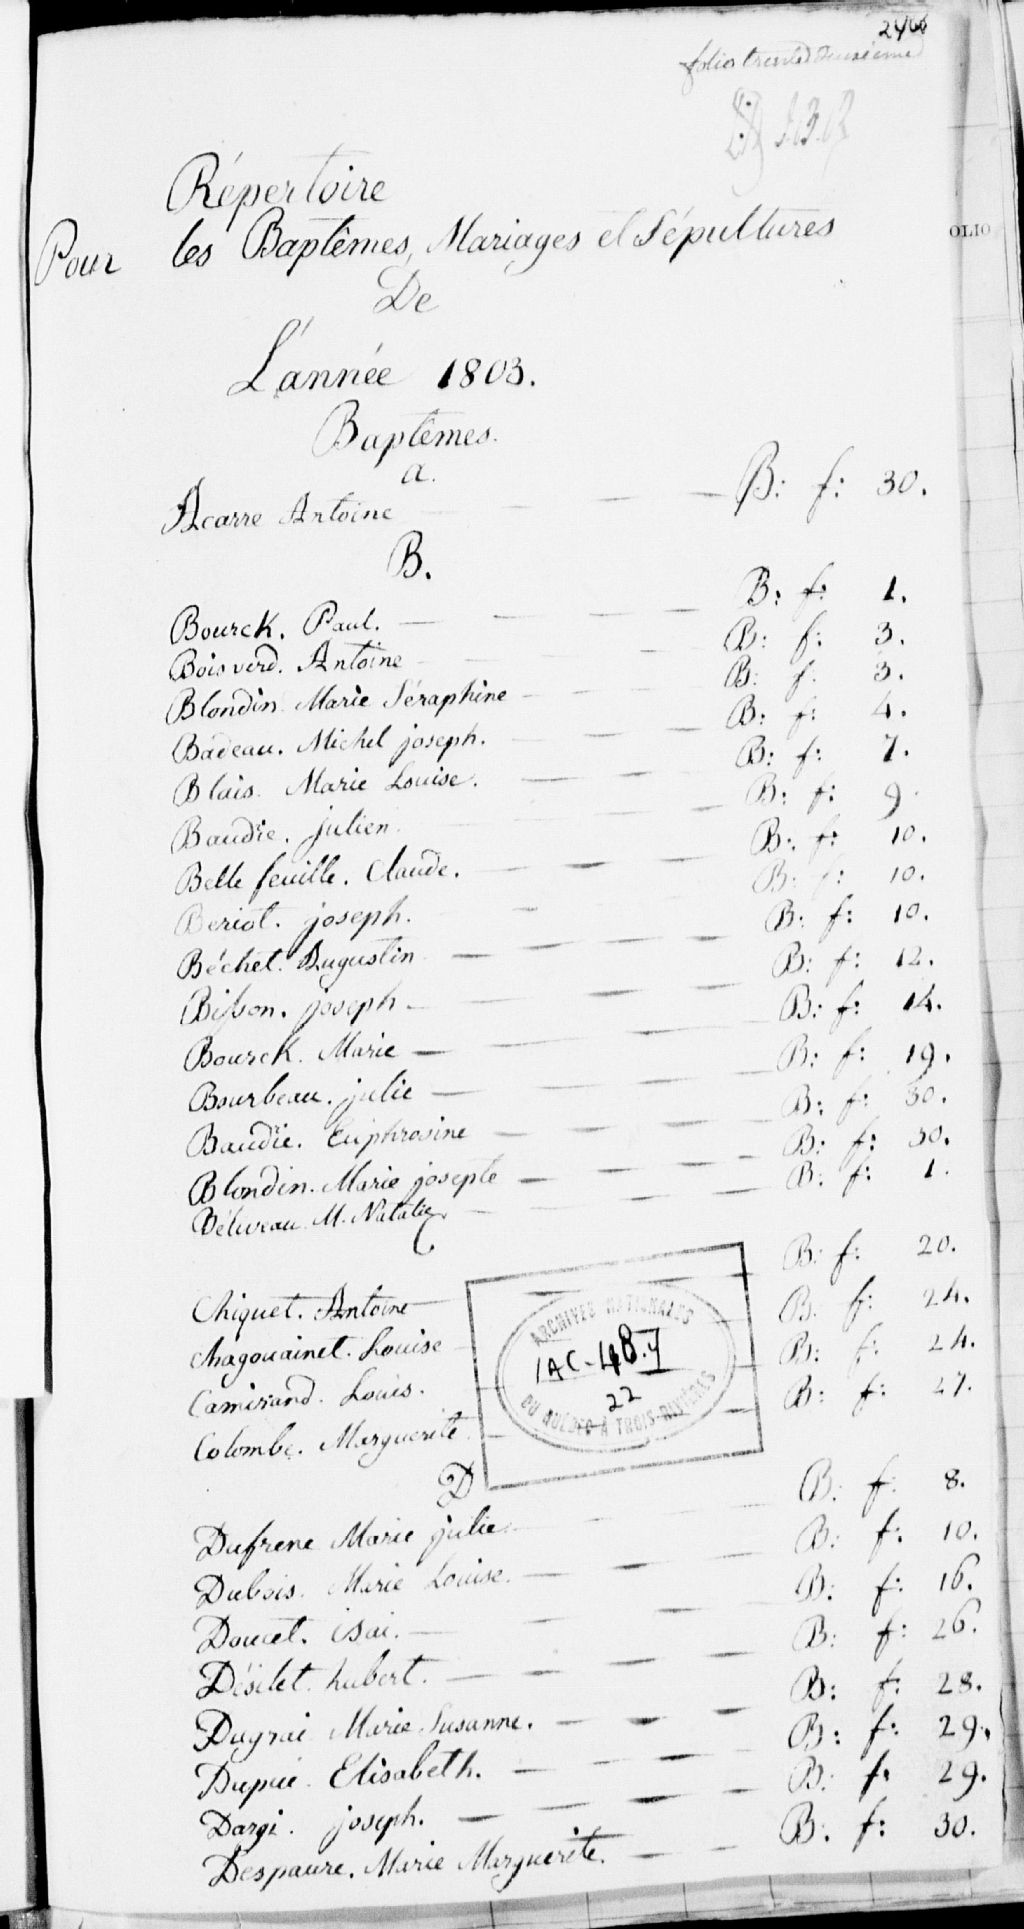 folio trente deuxième
Répertoire
Pour les Baptêmes, Mariages et Sépultures
De
L'année 1803.
Baptêmes.
a.
Acarre Antoine B: f: 30.
B.
Bourck. Paul. B: f: 1.
Boisverd. Antoine B: f: 3.
Blondin Marie Séraphine B: f: 3.
Badeau. Michel joseph. B: f: 4.
Blais. Marie Louise. B: f: 7.
Baudie. julien. B: f: 9.
Belle feuille. Claude. B: f: 10.
Beriot. joseph. B: f: 10.
Béchet. Augustin B: f: 10.
Bisson. joseph B: f: 12.
Bourck. Marie B: f: 14.
Bourbeau. julie B: f: 19.
Baudie. Euphrosine B: f: 30.
Blondin. Marie josepte B: f: 30.
Béliveau M. Natalie B: f: 1.
C
Chiquet. Antoine B: f: 20.
Chagouainet. Louise B: f: 24.
Camirand. Louis. B: f: 24.
Colombe. Marguerite. B: f: 27.
ARCHIVES NATIONALES
DU QUÉBEC À TROIS-RIVIÈRES
22
D
Dufrene Marie julie. B: f: 8.
Dubois. Marie Louise. B: f: 10.
Doucet. isai. B: f: 16.
Désilet. hubert. B: f: 26.
Dugrai Marie Susanne. B: f: 28.
Dupuie. Elisabeth. B: f: 29.
Dargi. joseph. B: f: 29.
Despaure. Marie Marguerite. B: f: 30.
OLIO